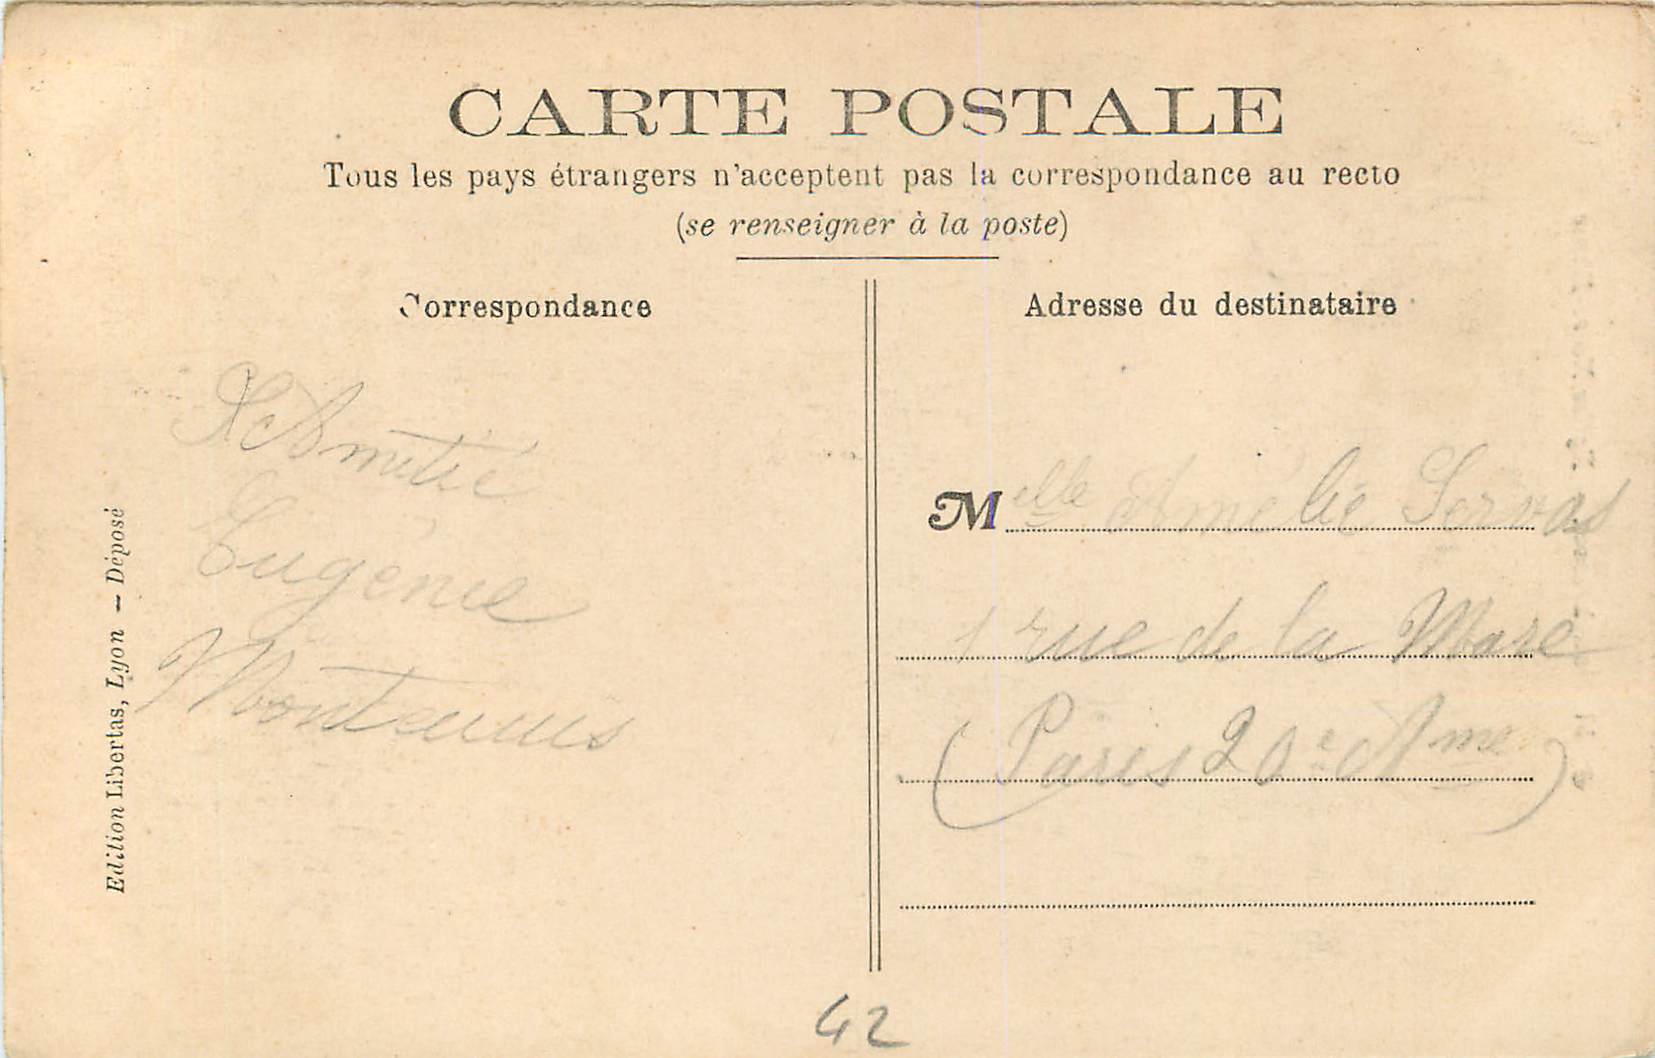 CARTE POSTALE
Tous les pays étrangers n'acceptent pas la correspondance au recto
(se renseigner à la poste)
Correspondance
Adresse du destinataire
Amitié
Eugénie
Melle Amélie Servas
1 rue de la Mare
(Paris 20e Ame)
Edition Libertas, Lyon — Déposé
42